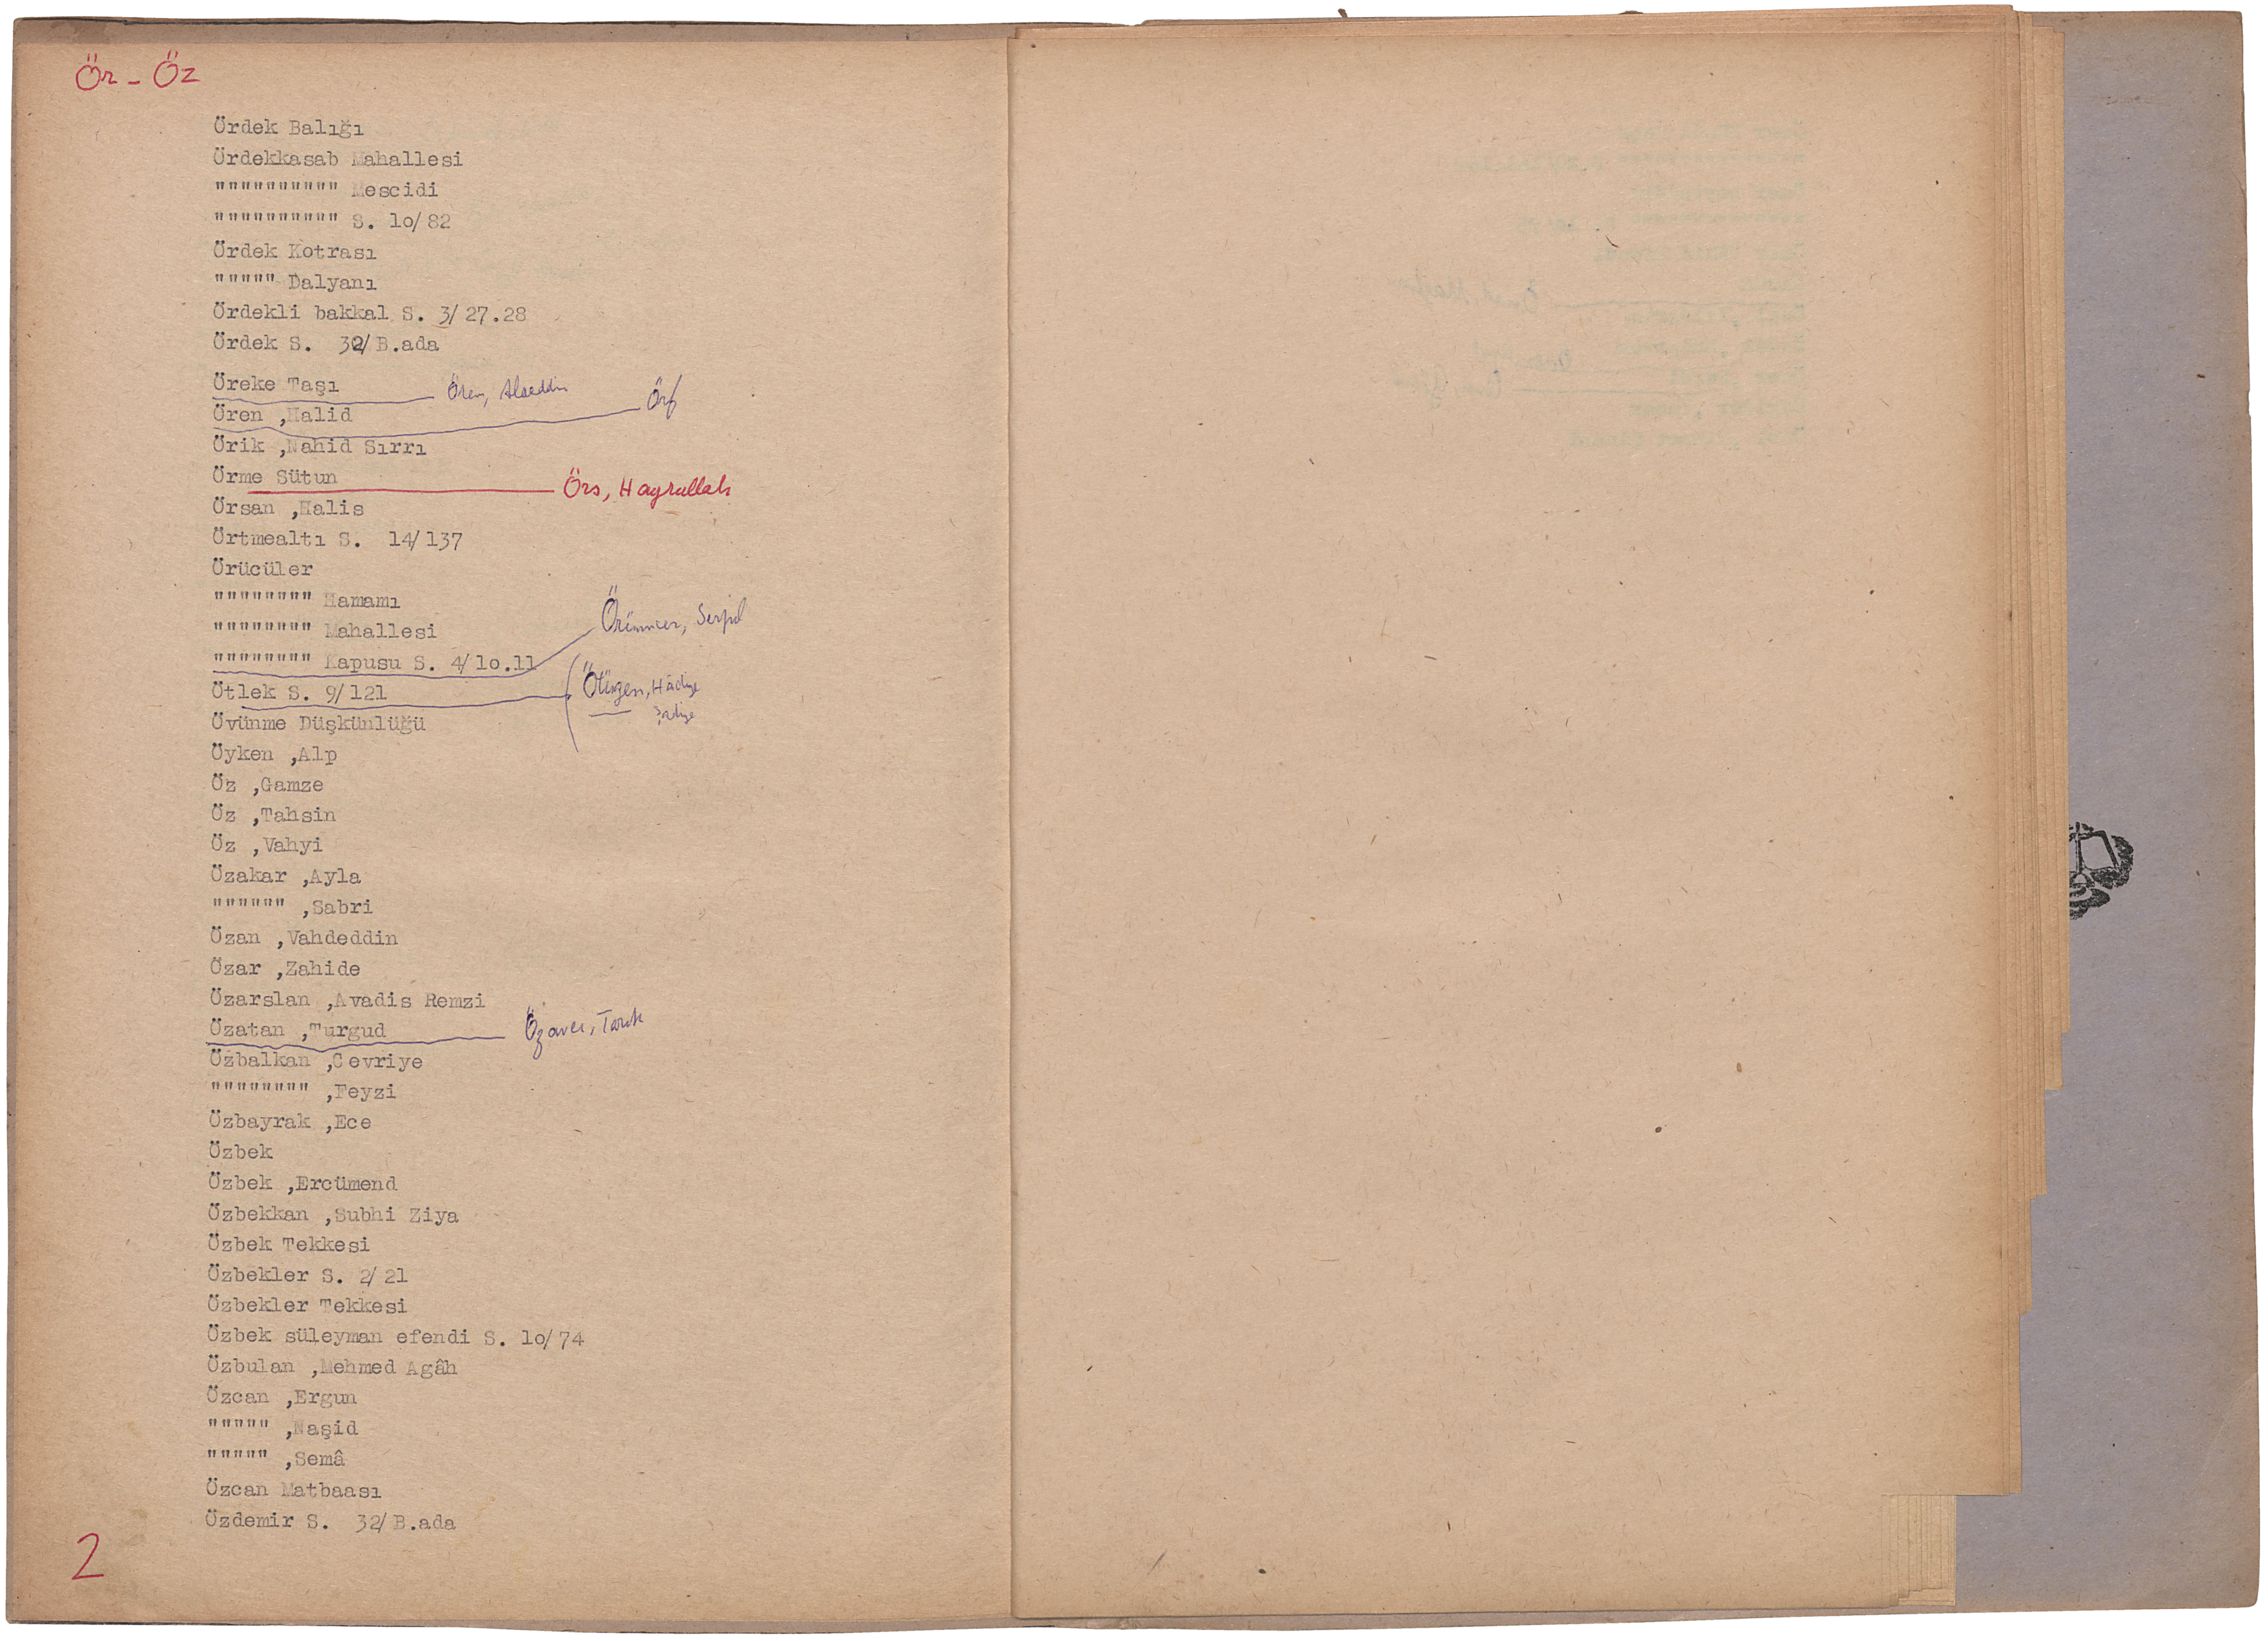 Ör - Öz
Ördek Balığı
Ördekkasab Mahallesi
"""""""""" Mescidi
"""""""""" S. lo/82
Ördek Kotrası
""""" Dalyanı
Ördekli bakkal S. 3/27.28
Ördek S. 32/B.ada
Öreke Taşı
Ören, Alaeddin
Örf
Ören ,Halid
Örik ,Nahid Sırrı
Örme Sütun
Örs, Hayrullah
Örsan ,Halis
Örtmealtı S. 14/137
Örücüler
"""""""" Hamamı
"""""""" Mahallesi
Örümcer, Serpil
"""""""" Kapusu S. 4/lo.11
Ötlek S. 9/121
Ötügen, Hâdiye
Övünme Düşkünlüğü
Öyken ,Alp
Öz ,Gamze
Öz ,Tahsin
Öz ,Vahyi
Özakar ,Ayla
"""""" ,Sabri
Özan ,Vahdeddin
Özar ,Zahide
Özarslan ,Avadis Remzi
Özatan ,Turgud
Özavcı, Tarık
Özbalkan ,Cevriye
"""""""" ,Feyzi
Özbayrak ,Ece
Özbek
Özbek ,Ercümend
Özbekkan ,Subhi Ziya
Özbek Tekkesi
Özbekler S. 2/21
Özbekler Tekkesi
Özbek süleyman efendi S. lo/74
Özbulan ,Mehmed Agâh
Özcan ,Ergun
""""" ,Naşid
""""" ,Semâ
Özcan Matbaası
Özdemir S. 32/B.ada
2